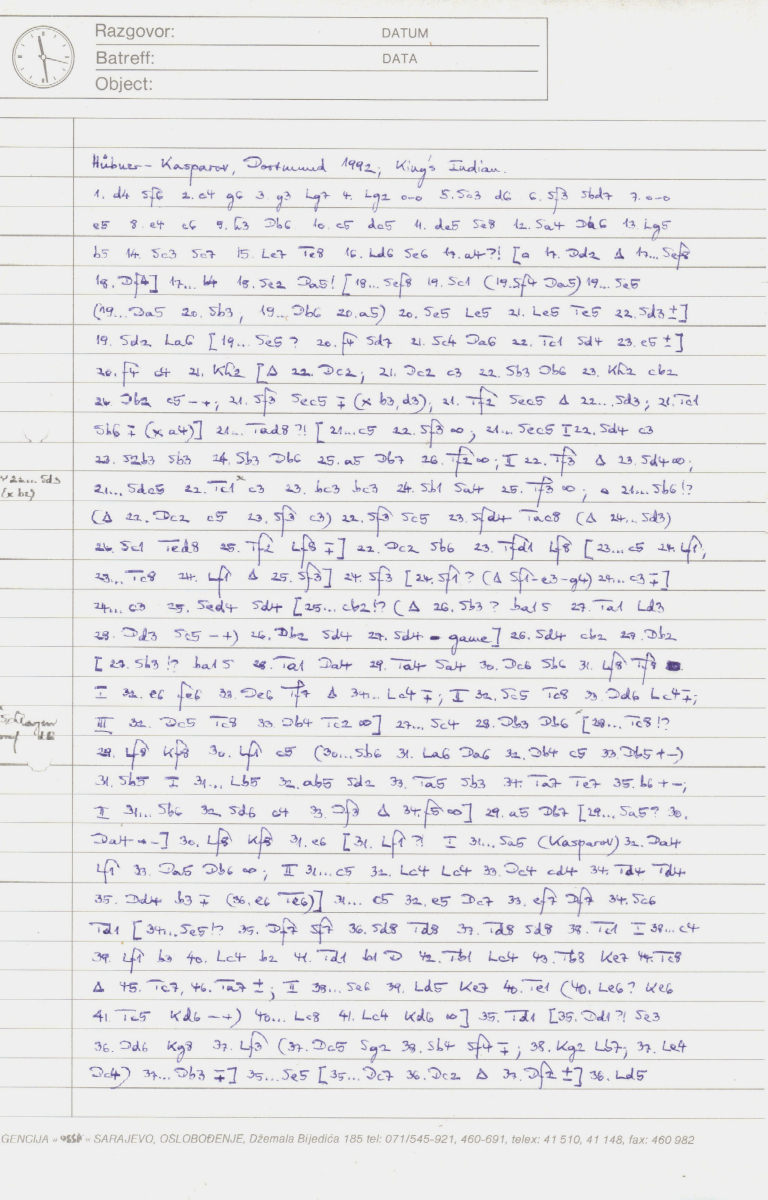 Razgovor: DATUM
Batreff: DATA
Object:
Hübner – Kasparov, Dortmund 1992; King's Indian.
1. d4 Sf6 2. c4 g6 3. g3 Lg7 4. Lg2 o-o 5. Sc3 d6 6. Sf3 Sbd7 7. o-o
e5 8. e4 c6 9. h3 Db6 10. c5 dc5 11. de5 Se8 12. Sa4 Da6 13. Lg5
b5 14. Sc3 Sc7 15. Le7 Te8 16. Ld6 Se6 17. a4?! [a 17. Dd2 Δ 17... Sef8
18. Df4] 17... b4 18. Se2 Da5! [18... Sef8 19. Sc1 (19. Sf4 Da5) 19... Se5
(19... Da5 20. Sb3, 19... Db6 20. a5) 20. Se5 Le5 21. Le5 Te5 22. Sd3 ±]
19. Sd2 La6 [19... Se5? 20. f4 Sd7 21. Sc4 Da6 22. Tc1 Sd4 23. e5 ±]
20. f4 c4 21. Kh2 [Δ 22. Dc2; 21. Dc2 c3 22. Sb3 Db6 23. Kh2 cb2
24. Db2 c5 -+; 21. Sf3 Sec5 ∓ (x b3, d3); 21. Tf2 Sec5 Δ 22... Sd3; 21. Tc1
Sb6 ∓ (x a4)] 21... Tad8?! [21... c5 22. Sf3 ∞; 21... Sec5 I 22. Sd4 c3
23. S2b3 Sb3 24. Sb3 Db6 25. a5 Db7 26. Tf2 ∞; II 22. Tf3 Δ 23. Sd4 ∞;
Y 22... Sd3
(x b2)
21... Sdc5 22. Tc1 x c3 23. bc3 bc3 24. Sb1 Sa4 25. Tf3 ∞; a 21... Sb6!?
(Δ 22. Dc2 c5 23. Sf3 c3) 22. Sf3 Sc5 23. Sfd4 Tac8 (Δ 24... Sd3)
24. Sc1 Ted8 25. Tf2 Lf8 ∓] 22. Dc2 Sb6 23. Tfd1 Lf8 [23... c5 24. Lf1,
23... Tc8 24. Lf1 Δ 25. Sf3] 24. Sf3 [24. Sf1? (Δ Sf1-e3-g4) 24... c3 ∓]
24... c3 25. Sed4 Sd4 [25... cb2!? (Δ 26. Sb3? ba1S 27. Ta1 Ld3
28. Dd3 Sc5 -+) 26. Db2 Sd4 27. Sd4 - game] 26. Sd4 cb2 27. Db2
[27. Sb3!? ba1S 28. Ta1 Da4 29. Ta4 Sa4 30. Dc6 Sb6 31. Lf8 Tf8
I 32. e6 fe6 33. De6 Tf7 Δ 34... Lc4 ∓; II 32. Sc5 Tc8 33. Dd6 Lc4 ∓;
III 32. Dc5 Tc8 33. Db4 Tc2 ∞] 27... Sc4 28. Db3 Db6 [28... Tc8!?
29. Lf8 Kf8 30. Lf1 c5 (30... Sb6 31. La6 Da6 32. Db4 c5 33. Db5 +-)
31. Sb5 I 31... Lb5 32. ab5 Sd2 33. Ta5 Sb3 34. Ta7 Te7 35. b6 +-;
II 31... Sb6 32. Sd6 c4 33. Df3 Δ 34. f5 ∞] 29. a5 Db7 [29... Sa5? 30.
Da4 +-] 30. Lf8 Kf8 31. e6 [31. Lf1?! I 31... Sa5 (Kasparov) 32. Da4
Lf1 33. Da5 Db6 ∞; II 31... c5 32. Lc4 Lc4 33. Dc4 cd4 34. Td4 Td4
35. Dd4 b3 ∓ (36. e6 Te6)] 31... c5 32. e5 Dc7 33. ef7 Df7 34. Sc6
Td1 [34... Se5!? 35. Df7 Sf7 36. Sd8 Td8 37. Td8 Sd8 38. Tc1 I 38... c4
39. Lf1 b3 40. Lc4 b2 41. Td1 b1D 42. Tb1 Lc4 43. Tb8 Ke7 44. Tc8
Δ 45. Tc7, 46. Ta7 ±; II 38... Se6 39. Ld5 Ke7 40. Te1 (40. Le6? Ke6
41. Tc5 Kd6 -+) 40... Lc8 41. Lc4 Kd6 ∞] 35. Td1 [35. Dd1?! Se3
36. Dd6 Kg8 37. Lf3 (37. Dc5 Sg2 38. Sb4 Sf4 ∓; 38. Kg2 Lb7; 37. Le4
Dc4) 37... Db3 ∓] 35... Se5 [35... Dc7 36. Dc2 Δ 37. Df2 ±] 36. Ld5
GENCIJA » « SARAJEVO, OSLOBOĐENJE, Džemala Bijedića 185 tel: 071/545-921, 460-691, telex: 41 510, 41 148, fax: 460 982